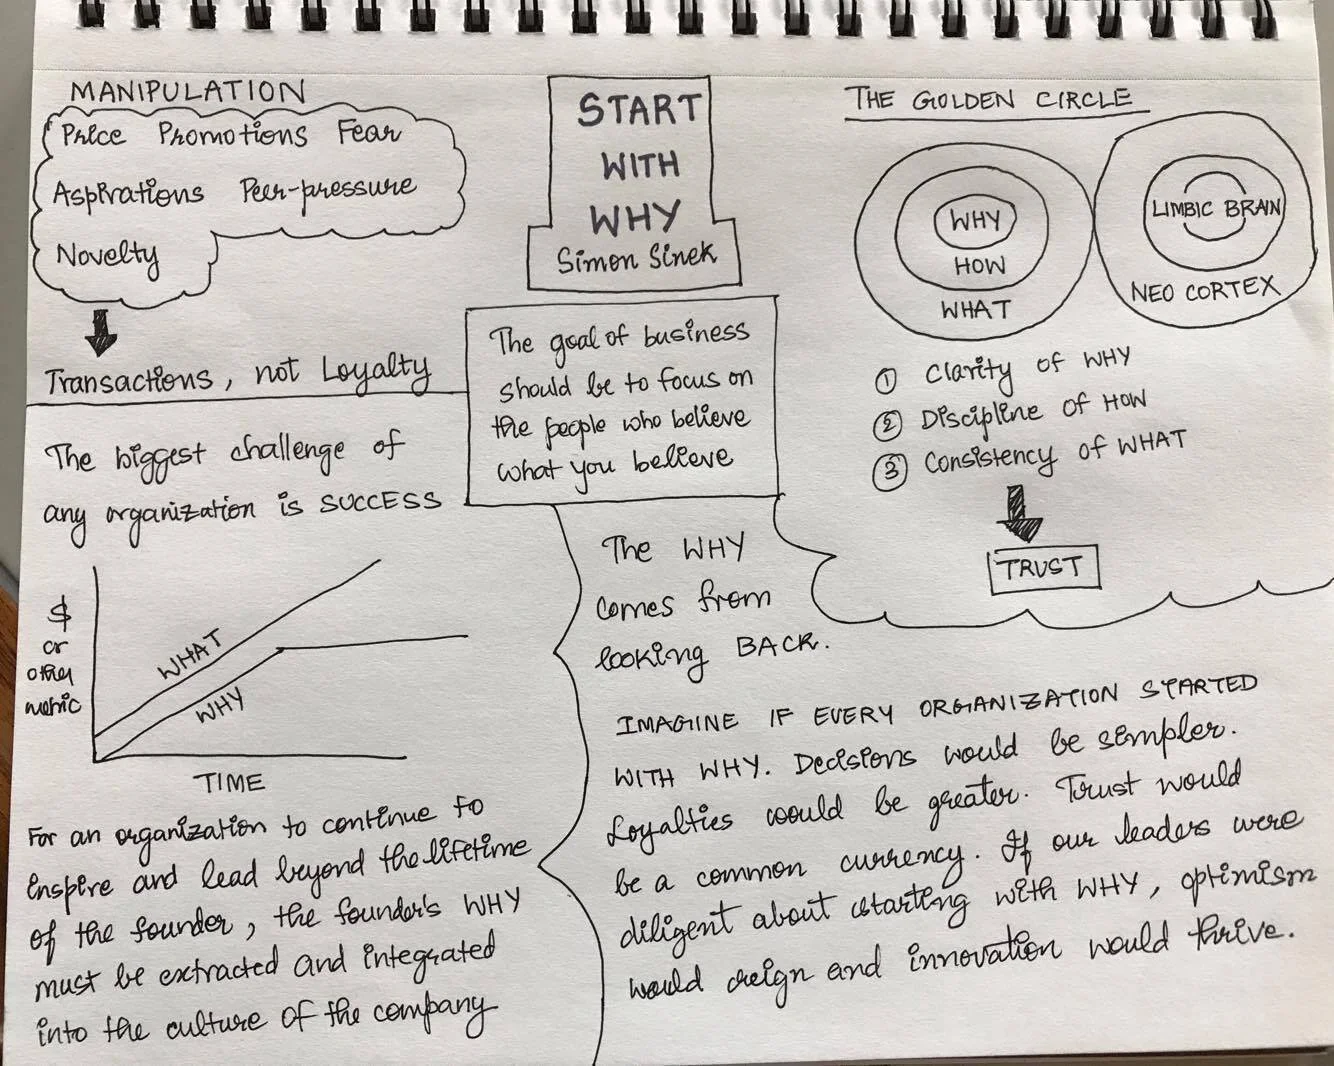 MANIPULATION
Price Promotions Fear
Aspirations Peer-pressure
Novelty
Transactions, not Loyalty
START
WITH
WHY
Simon Sinek
The goal of business
should be to focus on
the people who believe
what you believe
THE GOLDEN CIRCLE
WHY
HOW
WHAT
LIMBIC BRAIN
NEO CORTEX
① Clarity of WHY
② Discipline of HOW
③ Consistency of WHAT
TRUST
The biggest challenge of
any organization is SUCCESS
$
or
other
metric
WHAT
WHY
TIME
For an organization to continue to
inspire and lead beyond the lifetime
of the founder, the founder's WHY
must be extracted and integrated
into the culture of the company
The WHY
comes from
looking BACK.
IMAGINE IF EVERY ORGANIZATION STARTED
WITH WHY. Decisions would be simpler.
Loyalties would be greater. Trust would
be a common currency. If our leaders were
diligent about starting with WHY, optimism
would reign and innovation would thrive.